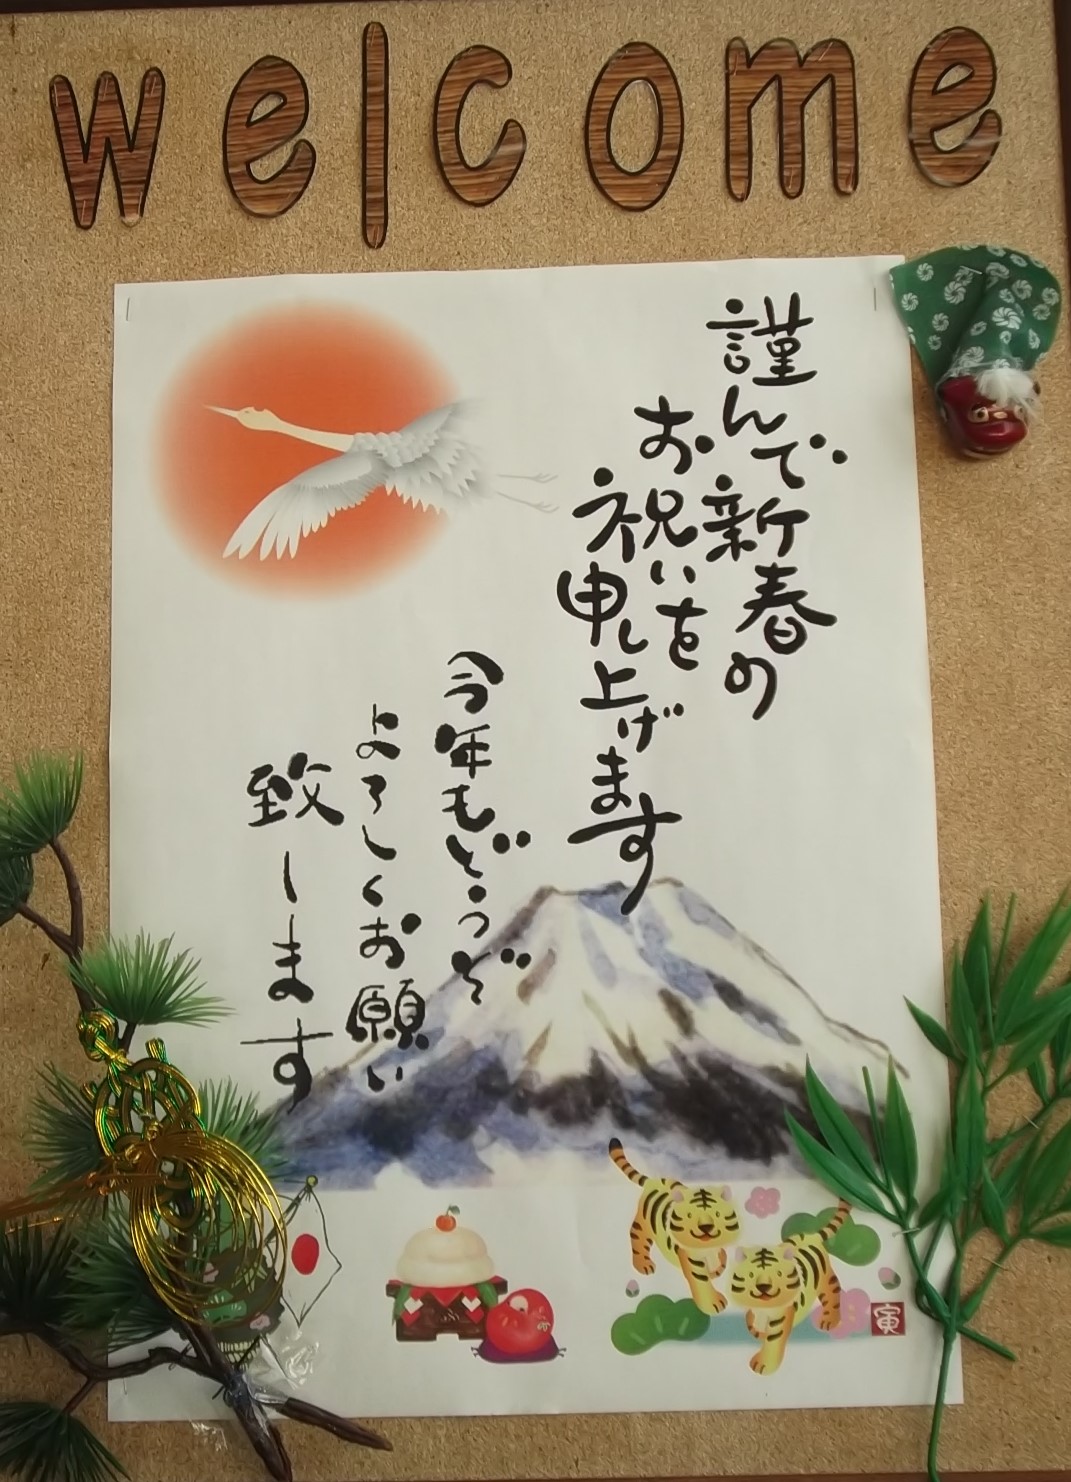 welcome
謹んで新春の
お祝いを
申し上げます
今年もどうぞ
よろしくお願い
致します
寅